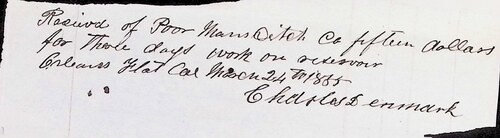 Recievd of Poor Mans Ditch Co fifteen dollars
for three days work on reservoir
Orleans Flat Cal March 24th 1855
Charles Denmark